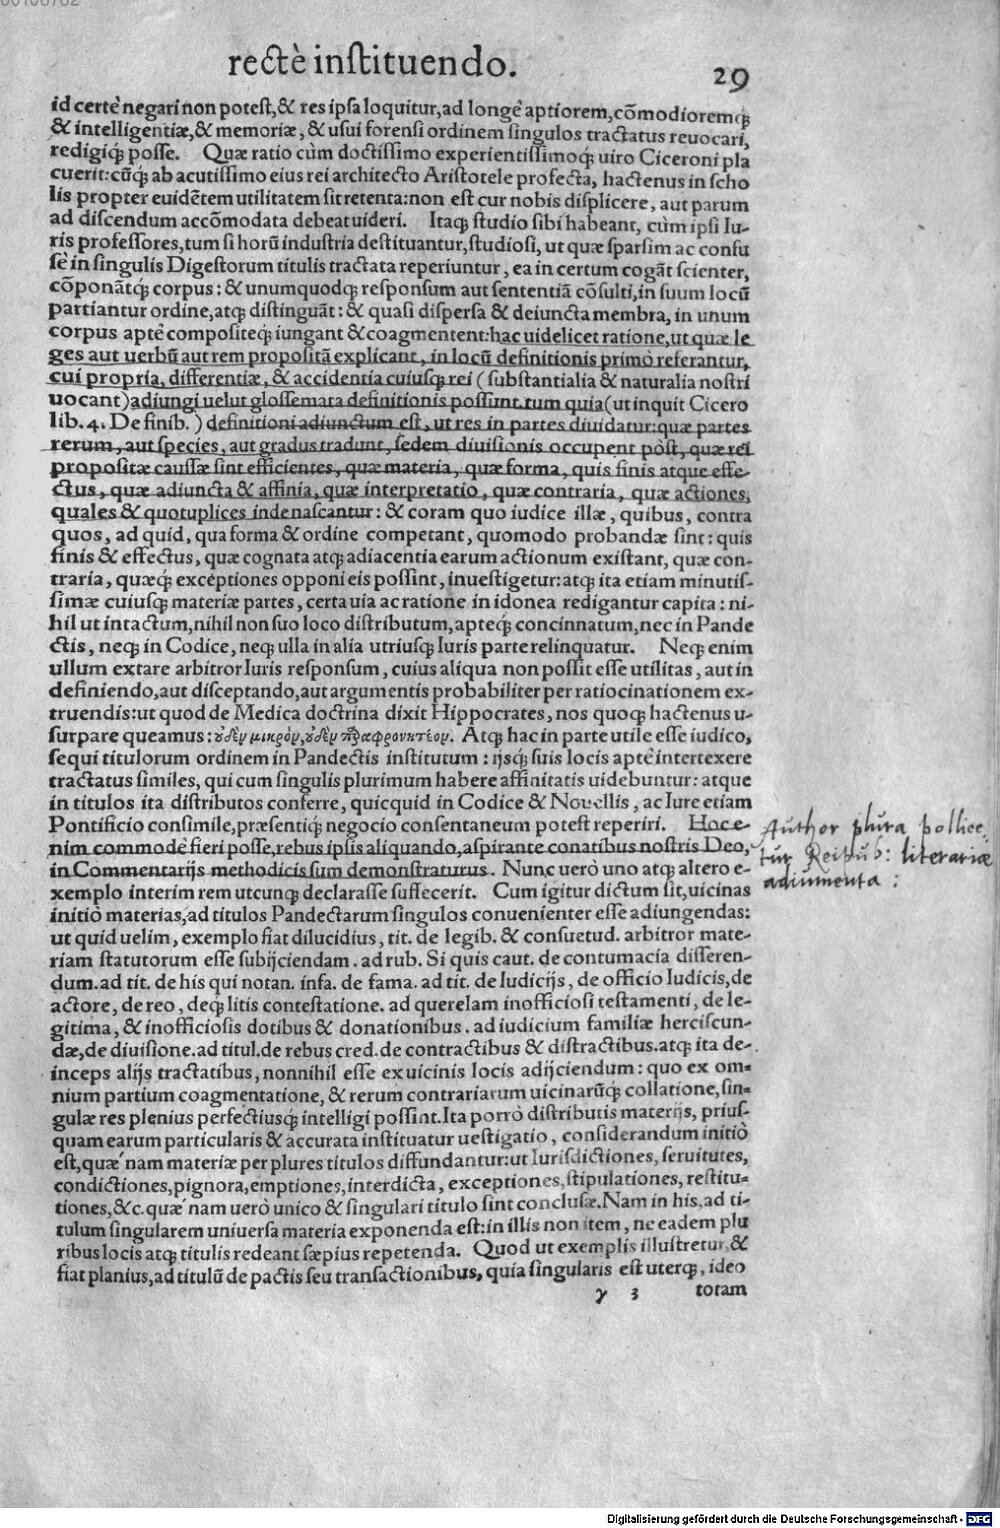 rectè instituendo.
29
id certè negari non potest, & res ipsa loquitur, ad longè aptiorem, cõmodioremq́;
& intelligentiæ, & memoriæ, & usui forensi ordinem singulos tractatus reuocari,
redigiq́; posse. Quæ ratio cùm doctissimo experientissimoq́; uiro Ciceroni pla
cuerit: cũq́; ab acutissimo eius rei architecto Aristotele profecta, hactenus in scho
lis propter euidẽtem utilitatem sit retenta: non est cur nobis displicere, aut parum
ad discendum accõmodata debeat uideri. Itaq; studio sibi habeant, cùm ipsi Iu-
ris professores, tum si horũ industria destituantur, studiosi, ut quæ sparsim ac confu
sè in singulis Digestorum titulis tractata reperiuntur, ea in certum cogãt scienter,
cõponãtq́; corpus: & unumquodq; responsum aut sententiã cõsulti, in suum locũ
partiantur ordine, atq; distinguãt: & quasi dispersa & deiuncta membra, in unum
corpus aptè compositeq́; iungant & coagmentent: hac uidelicet ratione, ut quæ le
ges aut uerbũ aut rem propositã explicant, in locũ definitionis primò referantur,
cui propria, differentiæ, & accidentia cuiusq; rei (substantialia & naturalia nostri
uocant) adiungi uelut glossemata definitionis possunt. tum quia (ut inquit Cicero
lib. 4. De finib.) definitioni adiunctum est, ut res in partes diuidatur: quæ partes
rerum, aut species, aut gradus tradunt, sedem diuisionis occupent pòst, quæ rei
propositæ caussæ sint efficientes, quæ materia, quæ forma, quis finis atque effe-
ctus, quæ adiuncta & affinia, quæ interpretatio, quæ contraria, quæ actiones,
quales & quotuplices inde nascantur: & coram quo iudice illæ, quibus, contra
quos, ad quid, qua forma & ordine competant, quomodo probandæ sint: quis
finis & effectus, quæ cognata atq; adiacentia earum actionum existant, quæ con-
traria, quæq́; exceptiones opponi eis possint, inuestigetur: atq; ita etiam minutis-
simæ cuiusq; materiæ partes, certa uia ac ratione in idonea redigantur capita: ni-
hil ut intactum, nihil non suo loco distributum, apteq́; concinnatum, nec in Pande
ctis, neq; in Codice, neq; ulla in alia utriusq; Iuris parte relinquatur. Neq; enim
ullum extare arbitror Iuris responsum, cuius aliqua non possit esse utilitas, aut in
definiendo, aut disceptando, aut argumentis probabiliter per ratiocinationem ex-
truendis: ut quod de Medica doctrina dixit Hippocrates, nos quoq; hactenus u-
surpare queamus: οὐδὲν μικρὸν, οὐδὲν παραφρονητέον. Atq; hac in parte utile esse iudico,
sequi titulorum ordinem in Pandectis institutum: ijsq́; suis locis aptè intertexere
tractatus similes, qui cum singulis plurimum habere affinitatis uidebuntur: atque
in titulos ita distributos conferre, quicquid in Codice & Nouellis, ac Iure etiam
Pontificio consimile, præsentiq́; negocio consentaneum potest reperiri. Hoc e-
nim commodè fieri posse, rebus ipsis aliquando, aspirante conatibus nostris Deo,
in Commentarijs methodicis sum demonstraturus. Nunc uerò uno atq; altero e-
xemplo interim rem utcunq; declarasse suffecerit. Cum igitur dictum sit, uicinas
initiò materias, ad titulos Pandectarum singulos conuenienter esse adiungendas:
ut quid uelim, exemplo fiat dilucidius, tit. de legib. & consuetud. arbitror mate-
riam statutorum esse subijciendam. ad rub. Si quis caut. de contumacia disseren-
dum. ad tit. de his qui notan. infa. de fama. ad tit. de Iudicijs, de officio Iudicis, de
actore, de reo, deq́; litis contestatione. ad querelam inofficiosi testamenti, de le-
gitima, & inofficiosis dotibus & donationibus. ad iudicium familiæ herciscun-
dæ, de diuisione. ad titul. de rebus cred. de contractibus & distractibus. atq; ita de-
inceps alijs tractatibus, nonnihil esse ex uicinis locis adijciendum: quo ex om-
nium partium coagmentatione, & rerum contrariarum uicinarũq́; collatione, sin-
gulæ res plenius perfectiusq́; intelligi possint. Ita porrò distributis materijs, prius-
quam earum particularis & accurata instituatur uestigatio, considerandum initiò
est, quæ´nam materiæ per plures titulos diffundantur: ut Iurisdictiones, seruitutes,
condictiones, pignora, emptiones, interdicta, exceptiones, stipulationes, restitu-
tiones, &c. quæ´nam uerò unico & singulari titulo sint conclusæ. Nam in his, ad ti-
tulum singularem uniuersa materia exponenda est: in illis non item, ne eadem plu
ribus locis atq; titulis redeant sæpius repetenda. Quod ut exemplis illustretur, &
fiat planius, ad titulũ de pactis seu transactionibus, quia singularis est uterq;, ideo
γ 3 totam
Author plura pollice,
tur Reipub: literariæ
adiumenta:
Digitalisierung gefördert durch die Deutsche Forschungsgemeinschaft - DFG